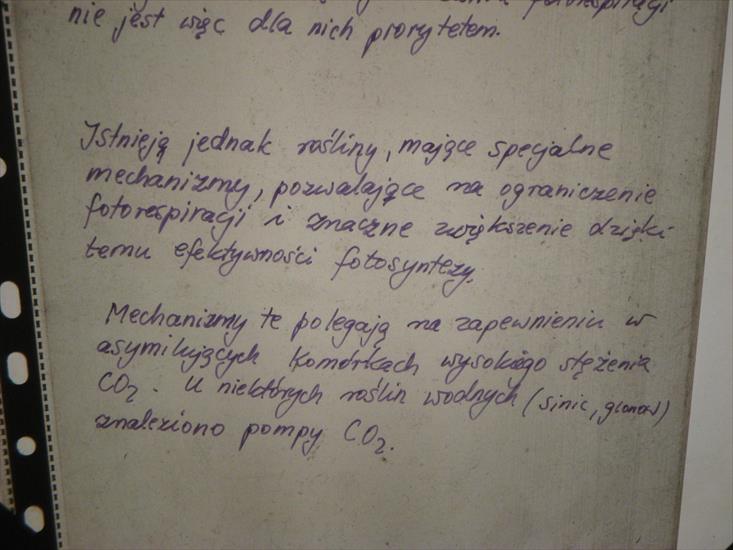 fotorespiracji
nie jest więc dla nich priorytetem.
Istnieją jednak rośliny, mające specjalne
mechanizmy, pozwalające na ograniczenie
fotorespiracji i znaczne zwiększenie dzięki
temu efektywności fotosyntezy.
Mechanizmy te polegają na zapewnieniu w
asymilujących komórkach wysokiego stężenia
CO₂. U niektórych roślin wodnych (sinic, glonów)
znaleziono pompy CO₂.